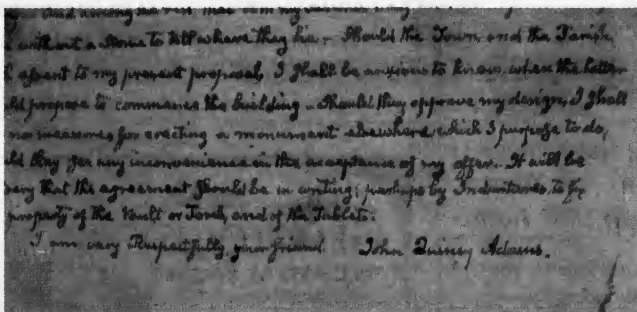 and among the rest
without a stone to tell where they lie. Should the Town, and the Parish,
assent to my present proposal, I shall be anxious to know, when the latter
propose to commence the building. Should they approve my design, I shall
no measures for erecting a monument elsewhere, which I purpose to do,
they see any inconvenience in the acceptance of my offer. It will be
that the agreement should be in writing; perhaps by Indentures, to fix
property of the Vault or Tomb, and of the Tablets.
I am very Respectfully your friend John Quincy Adams.